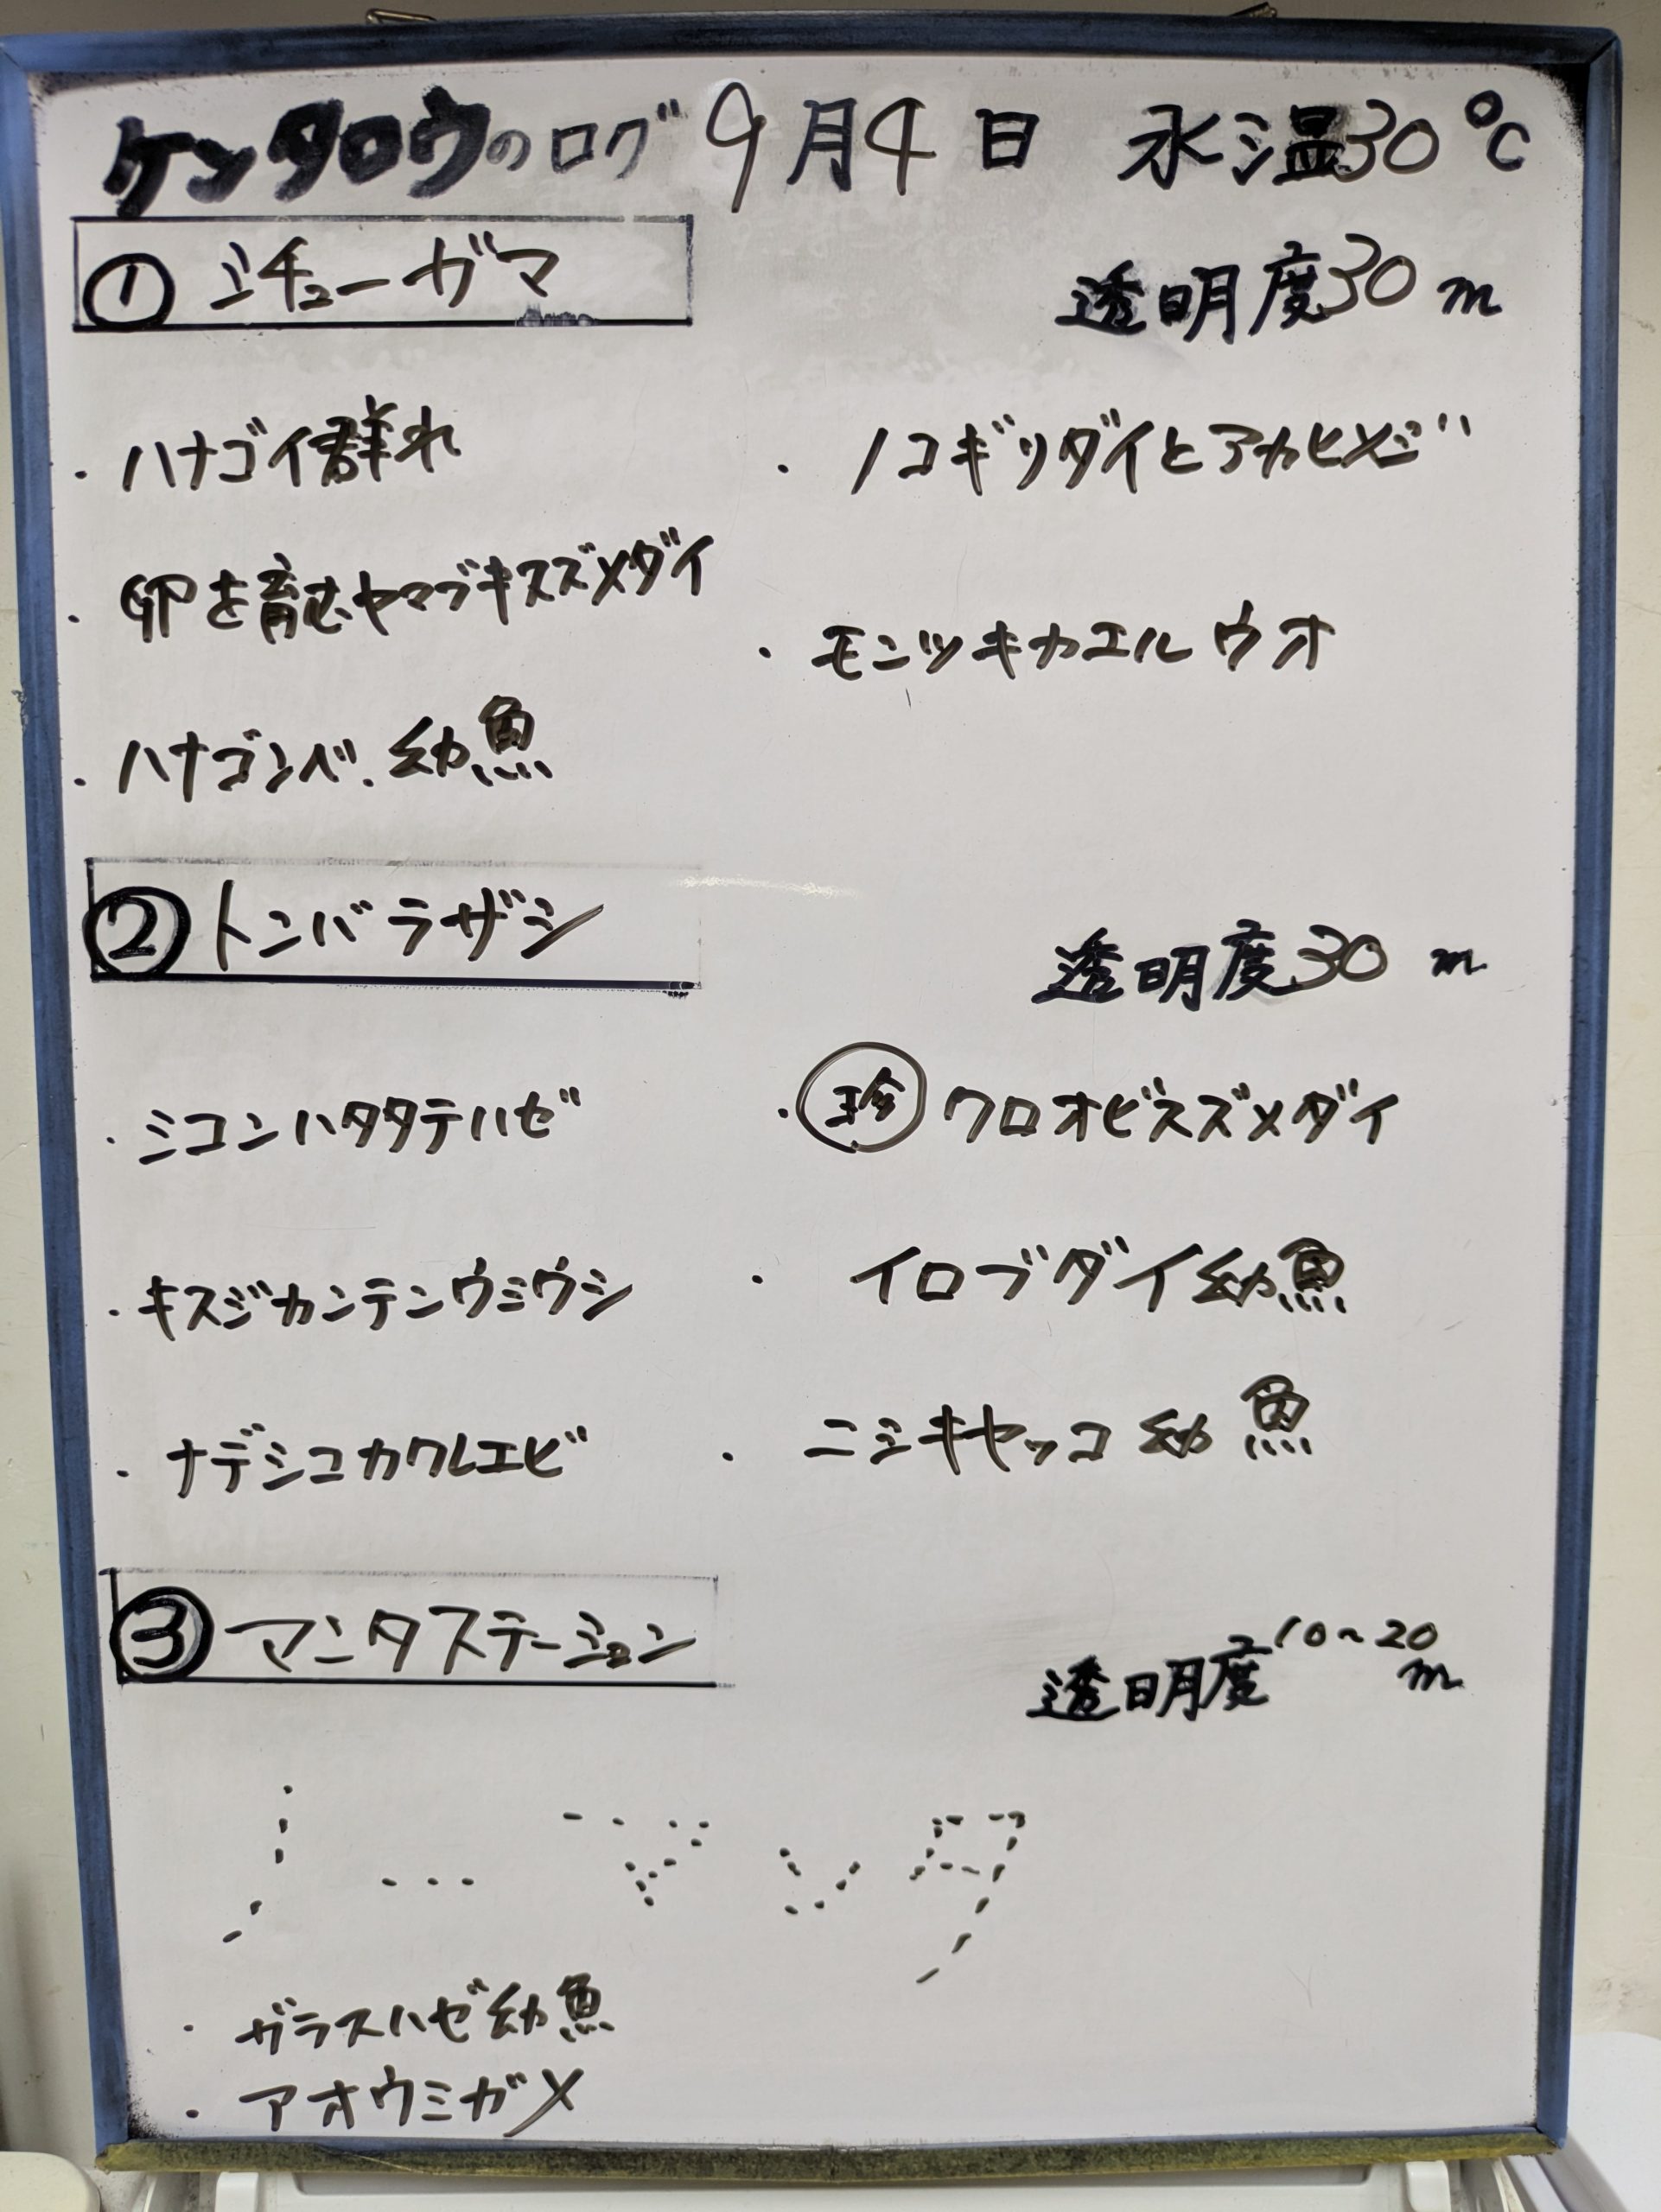 ケンタロウのログ 9月4日 水温30℃
① ミチューガマ
透明度30m
・ハナゴイ群れ
・卵を育むヤマブキスズメダイ
・ハナゴンベ.幼魚
・ノコギリダイとアカヒメジ
・モンツキカエルウオ
② トンバラザシ
透明度30m
・ミコンハタタテハゼ
・キスジカンテンウミウシ
・ナデシコカクレエビ
・珍 クロオビスズメダイ
・イロブダイ幼魚
・ニシキヤッコ幼魚
③ マンタステーション
透明度10~20m
ノーマンタ
・ガラスハゼ幼魚
・アオウミガメ